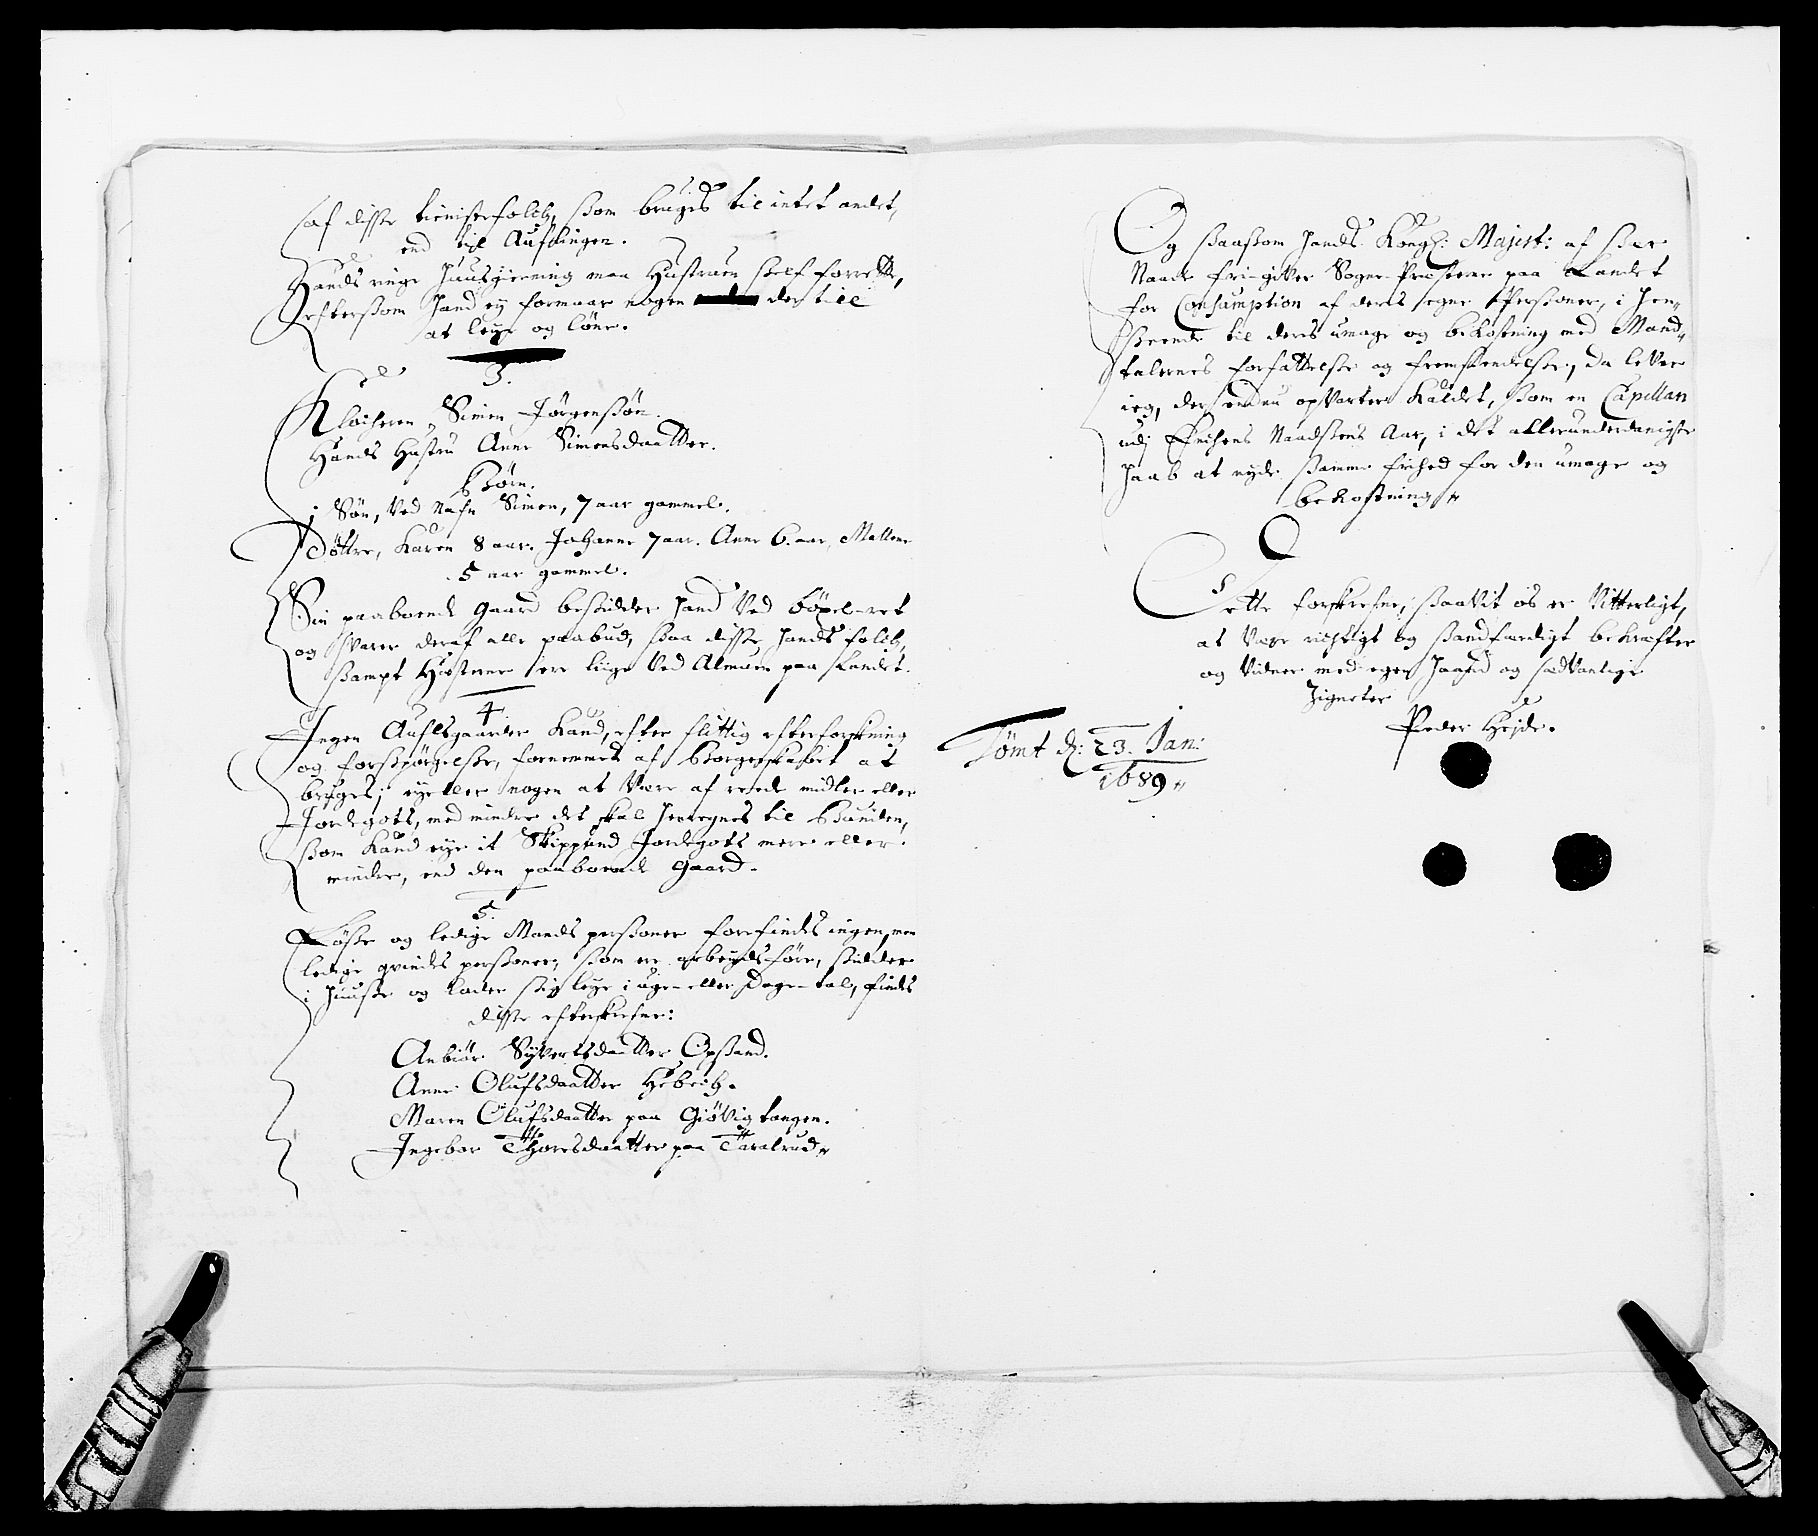 af disse tienistefolch, som bruges til intet andet,
end til Auflingen.
Hands ringe Huusgierning maa Hustruen self forrette,
eftersom hand ej formaar nogen der till
at leye og lönne.
3.
Klocheren, Simen Jörgensön.
Hands Hustru Anne Simensdaatter.
Börn.
1 Sön, ved Nafn Simen, 7 aar gammel.
Döttre, Karen 8 aar. Johanne 7 aar. Anne 6. aar, Mallene
5 aar gammel.
Sin paaboende Gaard besidder hand ved böxel-ret
og svarer deraf alle paabud, saa disse hands folch,
sampt Hustruer ere liige ved Almuen paa Landet.
4.
Ingen Auflsgaarder kand, efter flittig efterforskning
og forspörgelse, fornemmes af Borgerskabet at
bruges; eyeller nogen at være af reede midler eller
Jordegots, med mindre det skal henregnes til Bunden,
som kand eye it Skippund Jordegots mere eller
mindre, end den paaboende Gaard.
5.
Löse og ledige Mands personer forefindes ingen, men
ledige qvindes personer, som er arbeydsföre, sidder
i huuse og lader sig leye i uge- eller Dage-tal, findes
disse efterskrefne:
Anbiör Syvertsdaatter Opsand.
Anne Olufsdaatter
Maren Olufsdaatter paa Giövigtangen.
Ingebor Thoresdaatter paa Taralrud
Og saasom hands Kongl: Majest: af Stor
Naade fri-giver Sogne-Præsterne paa Landet
for Consumption af deres egne Personer, i hen-
seende til deres umage og bekostning med Mand-
talernes forfattelse og fremsendelse, da lever
ieg, der endnu opvarter Kaldet, som en Capellan
udj Enchens Naadsens Aar, i det allerunderdanigste
haab at nyde samme frihed for den umage og
bekostning
Dette forskrefne, saavit os er Vitterligt,
at være richtigt og sandfærdigt bekræfter
og vidner med egen haand og sædvanlige
Zigneter
Peder Hejde.
Tömt d: 23. Jan:
1689